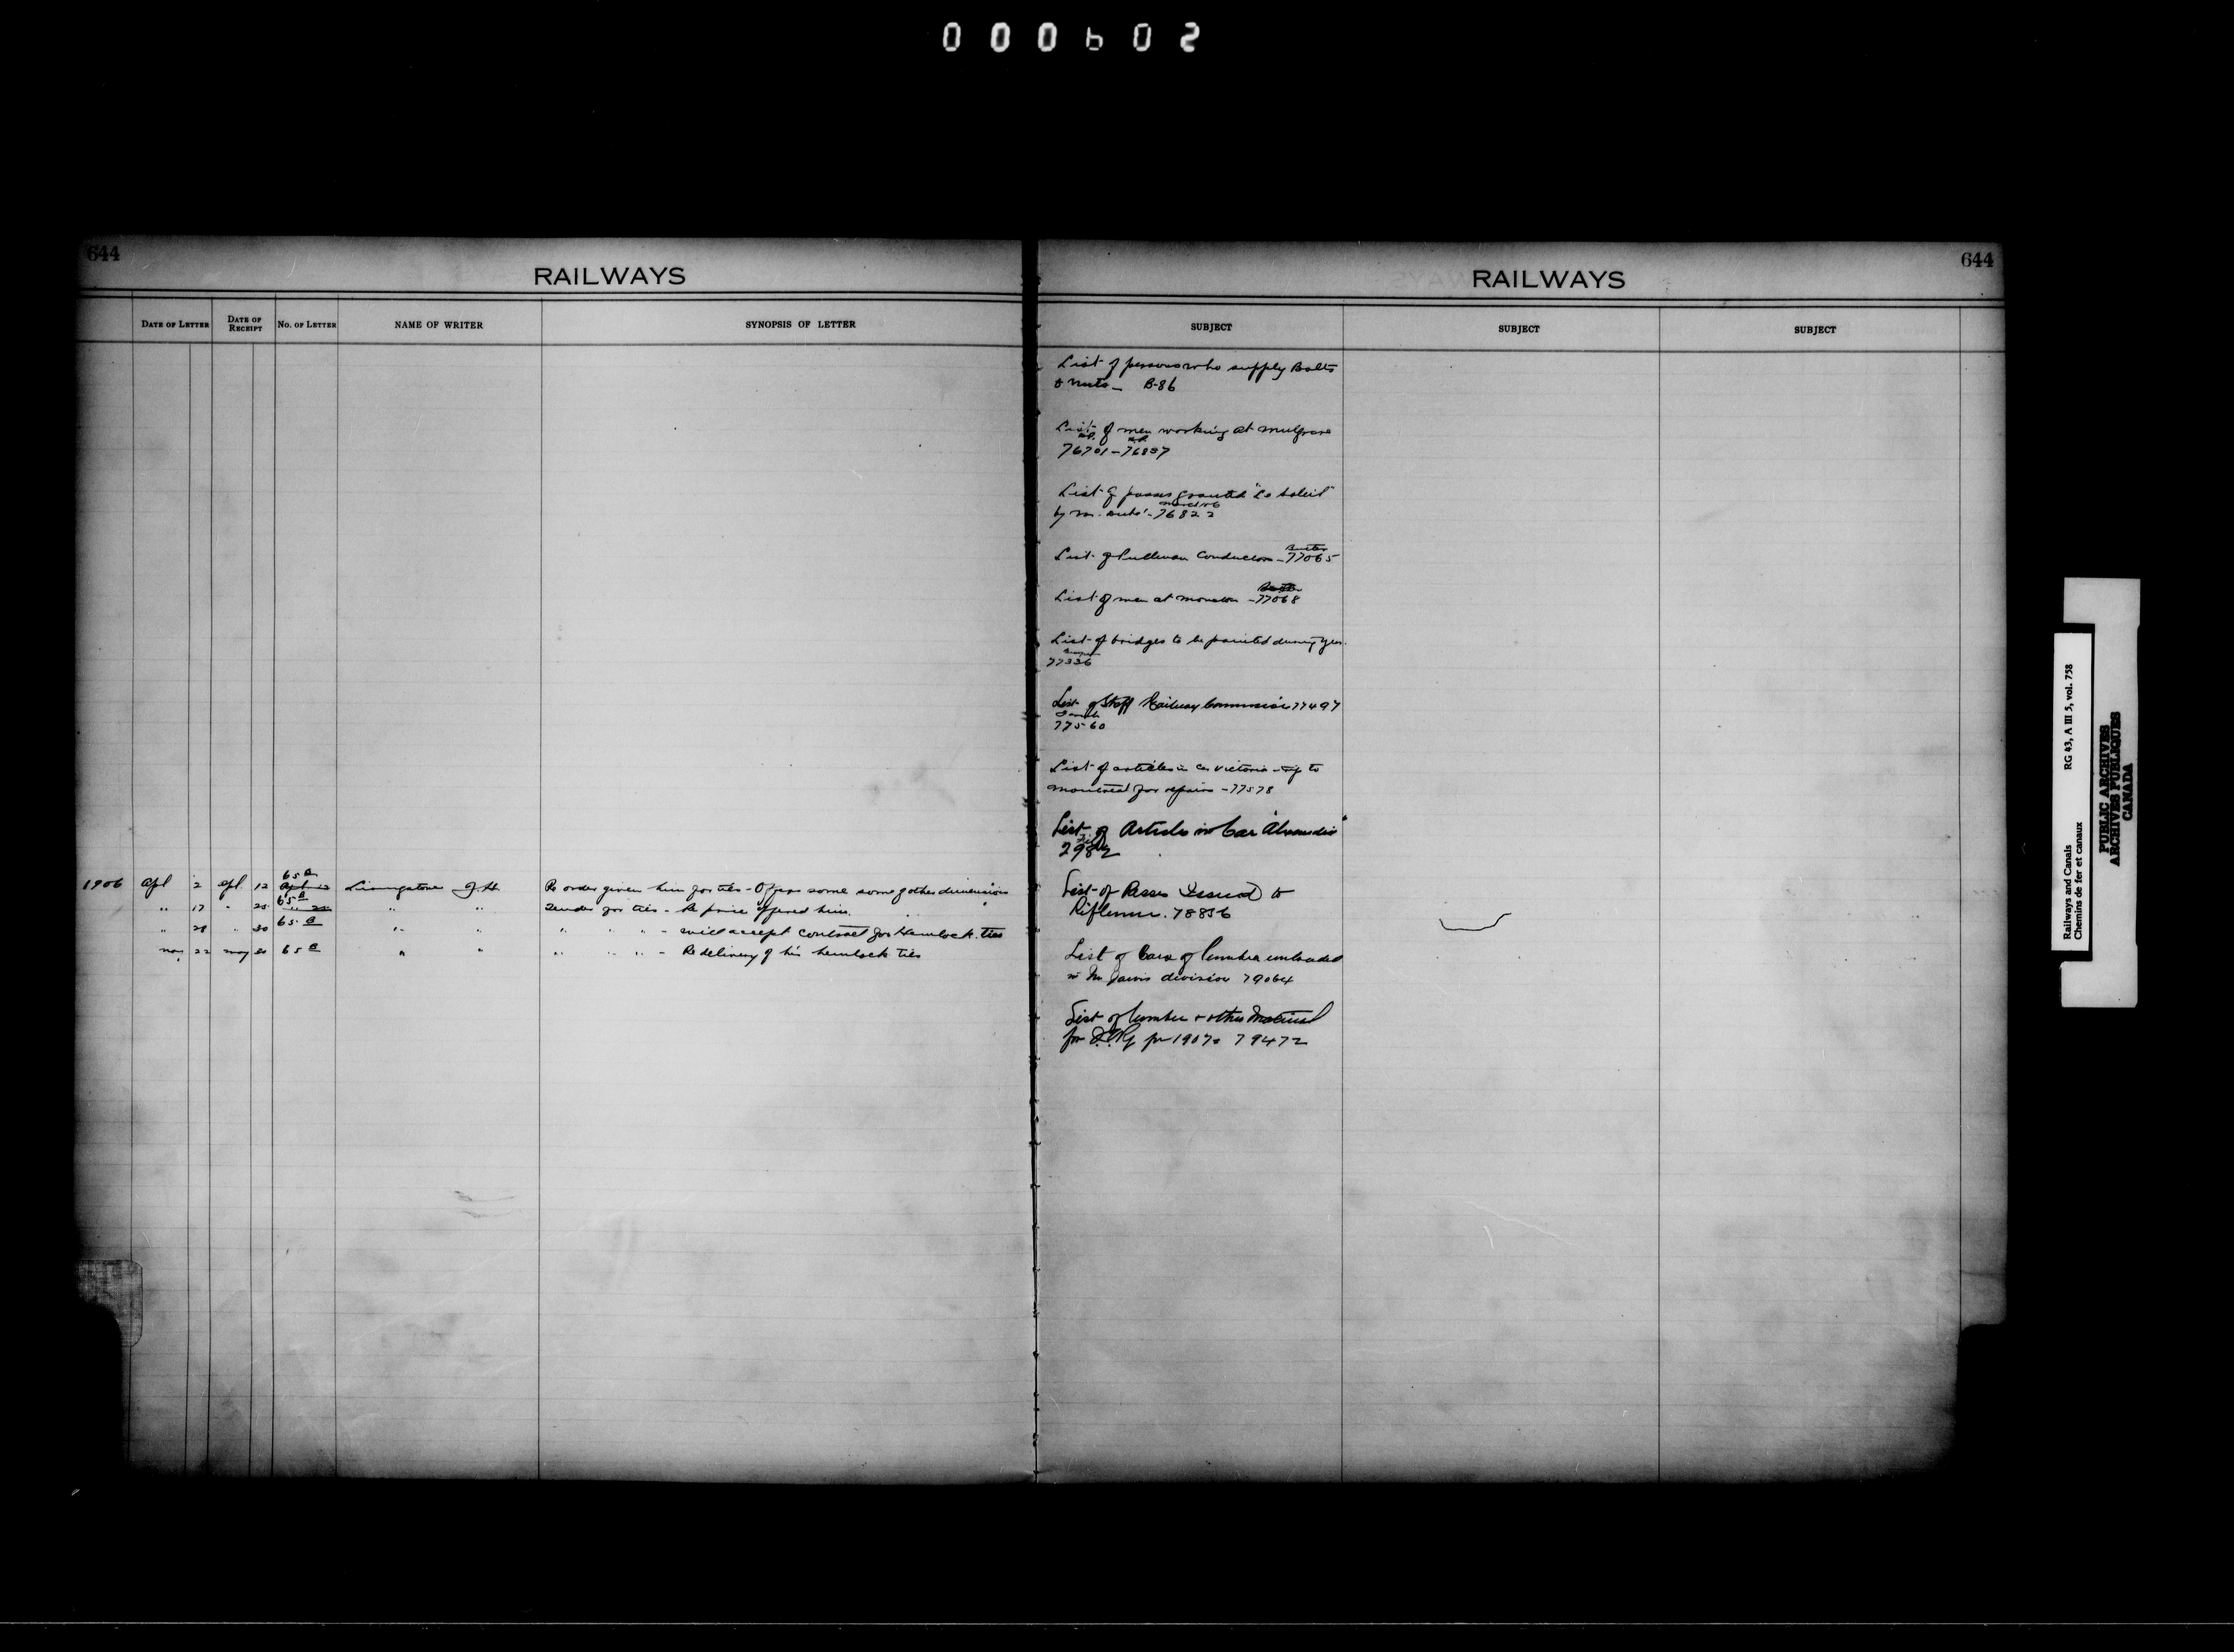 000602
644
RAILWAYS
DATE OF LETTER DATE OF RECEIPT NO. OF LETTER NAME OF WRITER SYNOPSIS OF LETTER
1906 Apl 2 Apl 12 65 a Livingstone J H Re order given him for ties - Offers some some of other dimensions
" 17 " 25 65 a " " Tender for ties - Re price offered him.
" 28 " 30 65 a " " " " " - will accept contract for Hemlock ties
May 22 May 65 a " " " " " - Re delivery of his hemlock ties
RAILWAYS
644
SUBJECT SUBJECT SUBJECT
List of persons who supply Bolts
& nuts - B-86
List of men working at Mulgrave
76701-76897
List of passes granted "Le Soleil"
by Mr. 76822
List of Pullman Conductors - 77065
List of men at Moncton - 77068
List of bridges to be painted during year.
77336
List of Staff Railway Commission 77497
77560
List of articles in Car Victoria - trip to
Montreal for repairs - 77578
List of Articles in Car
2982
List of Passes Issued to
Riflemen. 78856
List of Cars of lumber unloaded
division 79064
List of lumber & other Material
for 1907. 79472
Railways and Canals RG 43, A III 5, vol. 758
Chemins de fer et canaux
PUBLIC ARCHIVES
ARCHIVES PUBLIQUES
CANADA